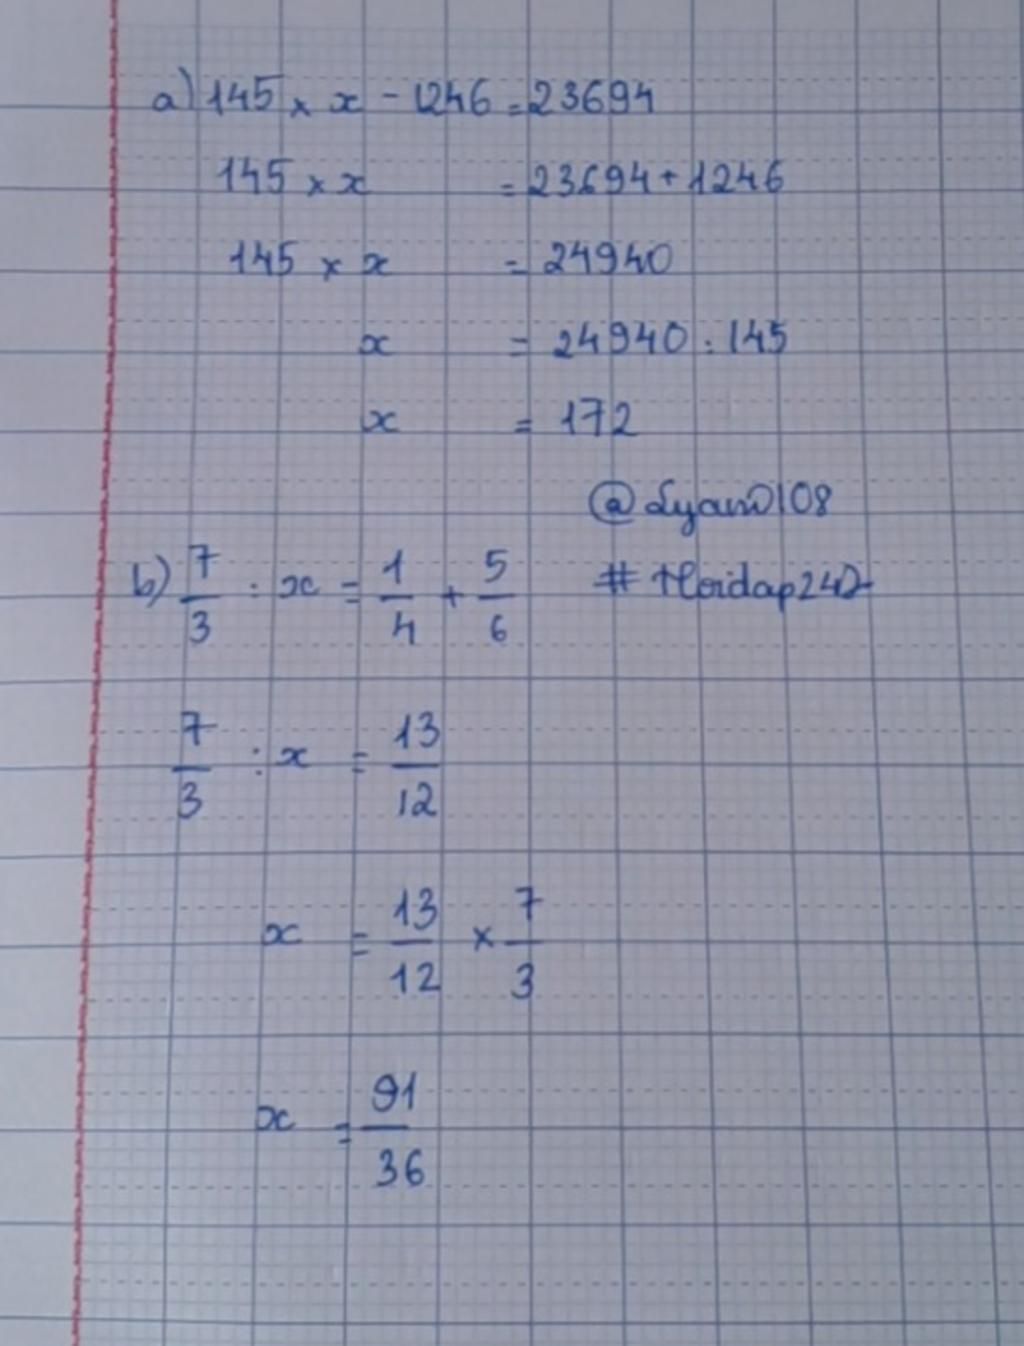 a) 145 × x - 1246 = 23694
145 × x = 23694 + 1246
145 × x = 24940
x = 24940 : 145
x = 172
@Lyan0108
b) 7/3 : x = 1/4 + 5/6 # Hoidap247
7/3 : x = 13/12
x = 13/12 × 7/3
x = 91/36